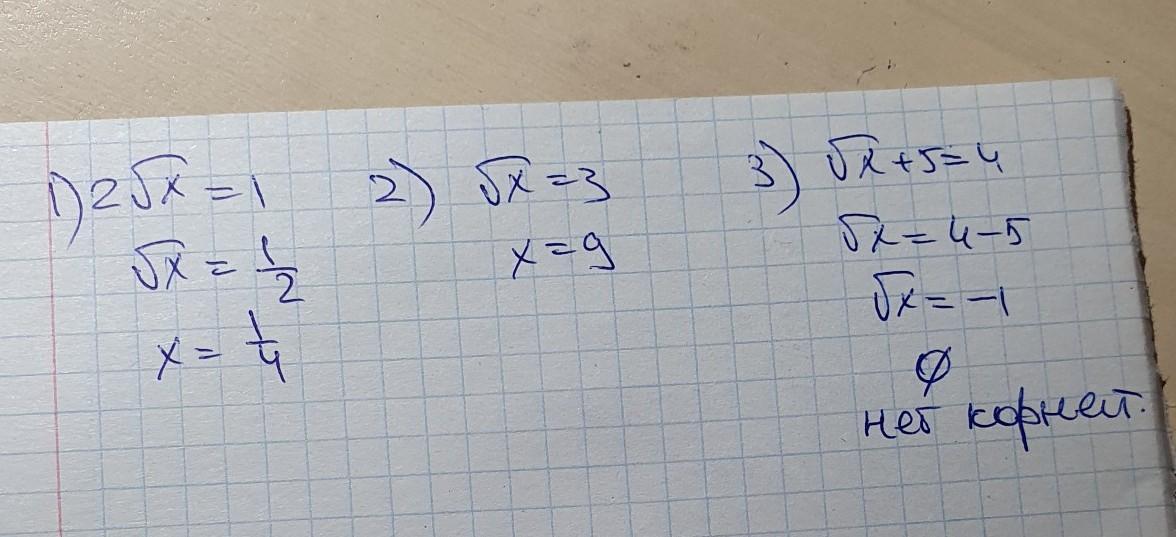 1) 2√x = 1
√x = 1/2
x = 1/4
2) √x = 3
x = 9
3) √x + 5 = 4
√x = 4 - 5
√x = -1
∅
нет корней.